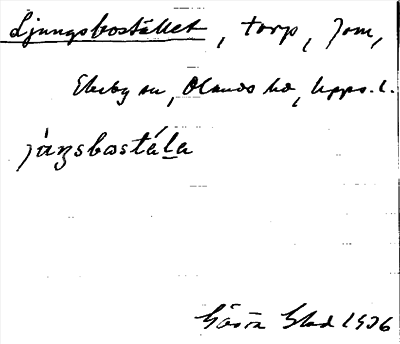 Ljungsbostället, torp, som,
Ekeby sn, Olands hd, Upps. l.
jȧŋsbostɛ́la
Gösta Blad 1936